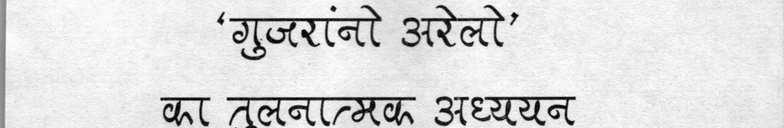 ‘गुजरांनो अरेलो’
का तुलनात्मक अध्ययन